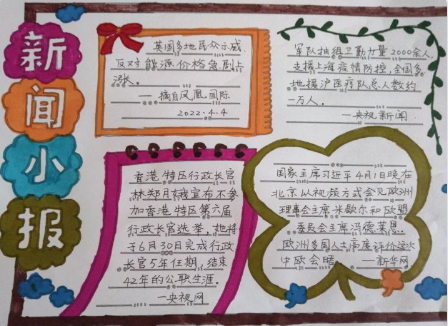 新
闻
小
报
英国多地民众示威
反对能源价格急剧上
涨。
——摘自凤凰国际
2022.4.4
军队抽组卫勤力量2000余人,
支援上海疫情防控,全国多
地援沪医疗队总人数约
一万人。
——央视新闻
香港特区行政长官
林郑月娥宣布不参
加香港特区第六届
行政长官选举,她将
于6月30日完成行政
长官5年任期,结束
42年的公职生涯。
——央视网
国家主席习近平4月1日晚在
北京以视频方式会见欧洲
理事会主席米歇尔和欧盟
委员会主席冯德莱恩
欧洲多国人士高度评价这次
中欧会晤
——新华网